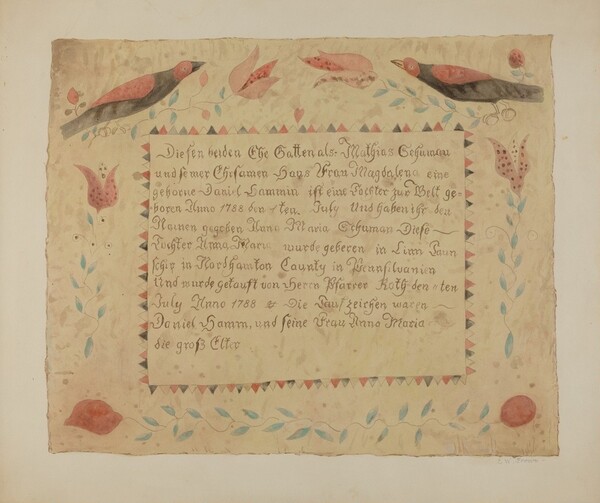 Diesen beiden Ehe Gatten als Mathias Schuman
und seiner Ehesamen Haus Frau Magdalena eine
geborne Daniel Hammin ist eine Tochter zur Welt ge-
boren Anno 1788 den ten July Und haben ihr den
Namen gegeben Anna Maria Schuman Diese
Tochter Anna Maria wurde geboren in Linn Taun
schip in Nordhamton County in Pennsilvanien
Und wurde getauft von Herrn Pfarrer Roth den ten
July Anno 1788 Die Taufzeichen waren
Daniel Hamm, und seine Frau Anna Maria
die groß Elter